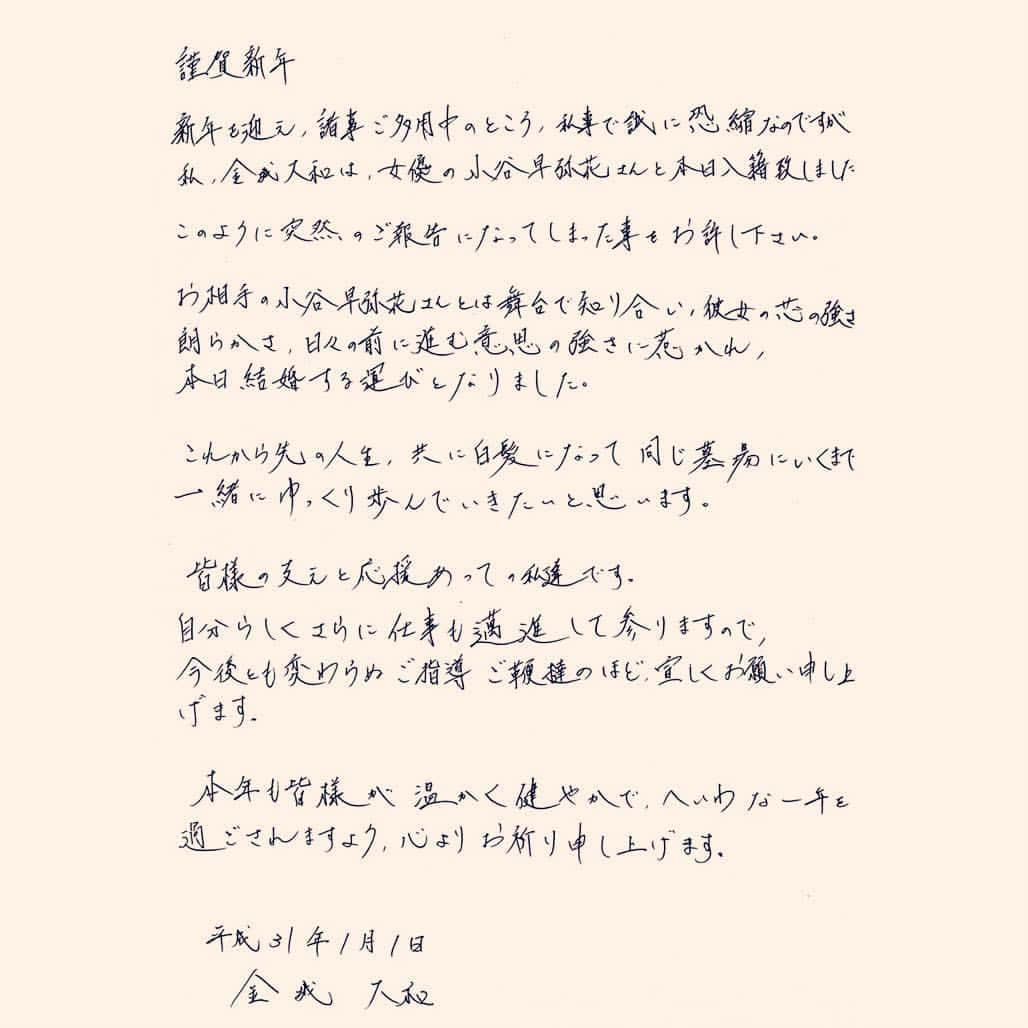 謹賀新年
新年を迎え、諸事ご多用中のところ、私事で誠に恐縮なのですが
私、金城大和は、女優の小谷早弥花さんと本日入籍致しました
このように突然のご報告になってしまった事をお許し下さい。
お相手の小谷早弥花さんとは舞台で知り合い、彼女の芯の強さ
朗らかさ、日々の前に進む意思の強さに惹かれ、
本日結婚する運びとなりました。
これから先の人生、共に白髪になって同じ墓場にいくまで
一緒にゆっくり歩んでいきたいと思います。
皆様の支えと応援あっての私達です。
自分らしくさらに仕事も邁進して参りますので、
今後とも変わらぬご指導ご鞭撻のほど、宜しくお願い申し上
げます。
本年も皆様が温かく健やかで、へいわな一年を
過ごされますよう、心よりお祈り申し上げます。
平成31年1月1日
金城 大和